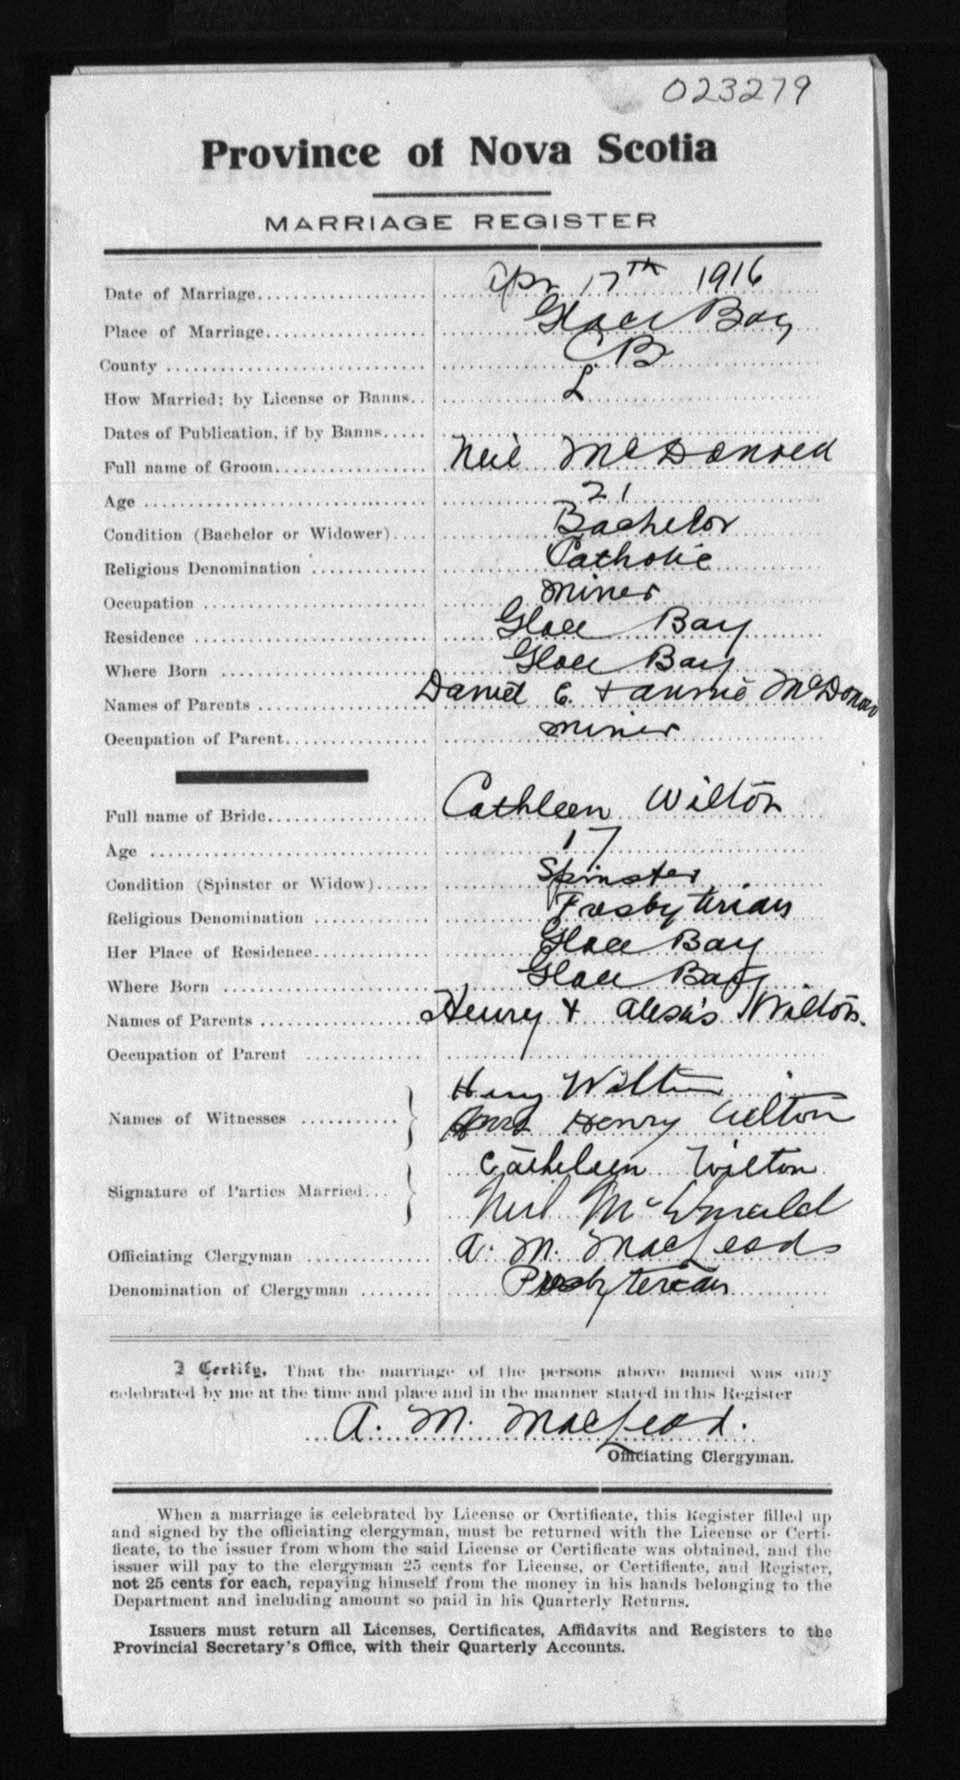 023279
Province of Nova Scotia
MARRIAGE REGISTER
Date of Marriage Apr 17th 1916
Place of Marriage Glace Bay
County CB
How Married; by License or Banns L
Dates of Publication, if by Banns
Full name of Groom Neil McDonald
Age 21
Condition (Bachelor or Widower) Bachelor
Religious Denomination Catholic
Occupation Miner
Residence Glace Bay
Where Born Glace Bay
Names of Parents Daniel C. + Annie McDonald
Occupation of Parent Miner
Full name of Bride Cathleen Wilton
Age 17
Condition (Spinster or Widow) Spinster
Religious Denomination Presbyterian
Her Place of Residence Glace Bay
Where Born Glace Bay
Names of Parents Henry + Wilton.
Occupation of Parent
Names of Witnesses Wilton
Mrs Henry Wilton
Signature of Parties Married Cathleen Wilton
Neil McDonald
Officiating Clergyman A. M. MacLeod
Denomination of Clergyman Presbyterian
I Certify, That the marriage of the persons above named was only
celebrated by me at the time and place and in the manner stated in this Register
A. M. MacLeod.
Officiating Clergyman.
When a marriage is celebrated by License or Certificate, this Register filled up
and signed by the officiating clergyman, must be returned with the License or Certi-
ficate, to the issuer from whom the said License or Certificate was obtained, and the
issuer will pay to the clergyman 25 cents for License, or Certificate, and Register,
not 25 cents for each, repaying himself from the money in his hands belonging to the
Department and including amount so paid in his Quarterly Returns.
Issuers must return all Licenses, Certificates, Affidavits and Registers to the
Provincial Secretary's Office, with their Quarterly Accounts.